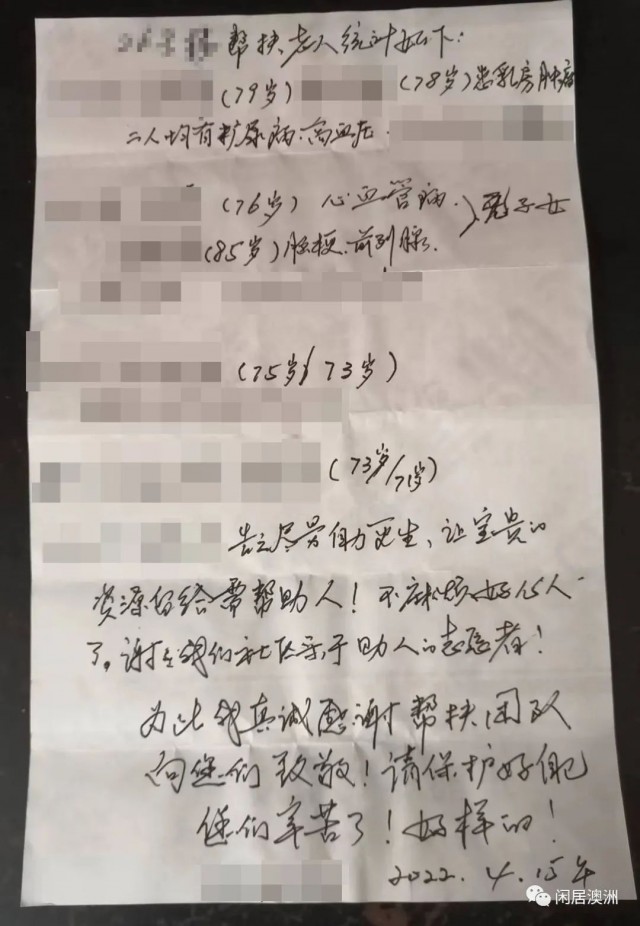 帮扶老人统计如下：
（79岁）（78岁）患乳房肿瘤
二人均有扩尿病、高血压．
（76岁）心血管病．
（85岁）脑梗．前列腺．
子女
（75岁/73岁）
（73岁/71岁）
告之尽量自力更生、让宝贵的
资源留给需帮助人！不麻烦好心人
了。谢谢我们社区乐于助人的志愿者！
为此我真诚感谢帮扶团队
向您们致敬！请保护好自己
您们辛苦了！好样的！
2022.4.15午
闲居澳洲